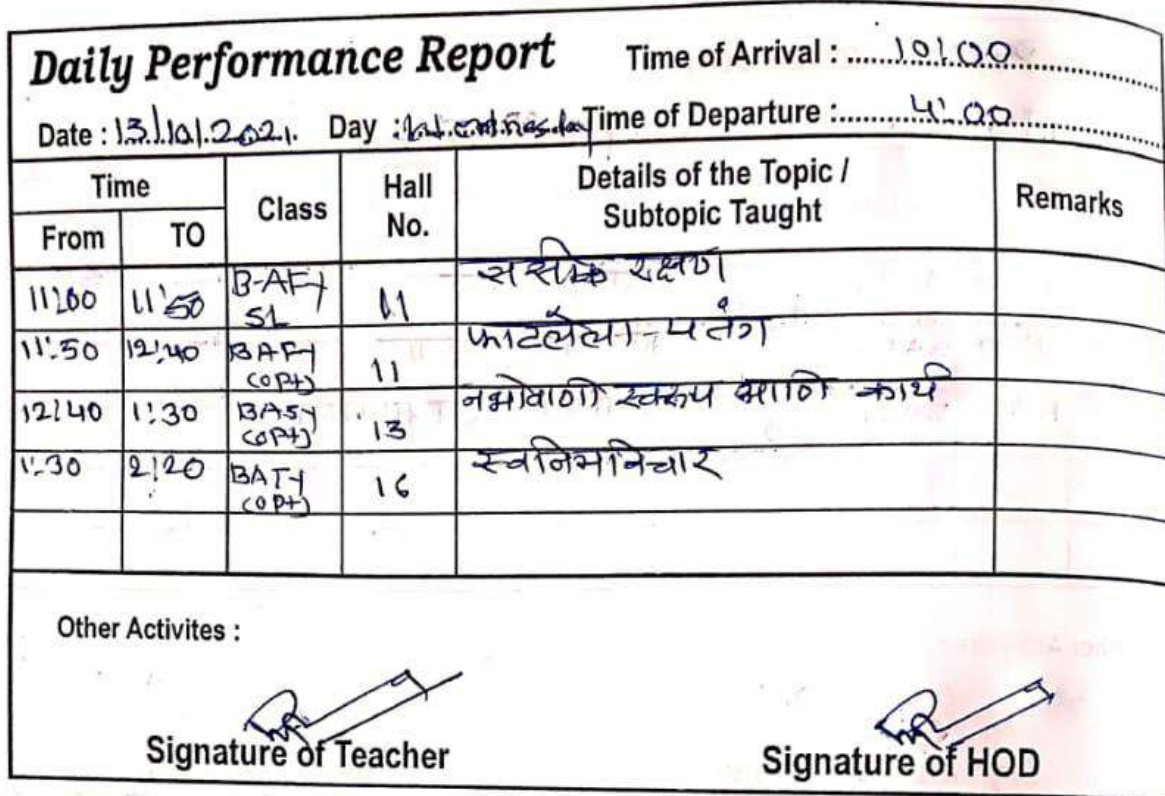 Daily Performance Report
Time of Arrival : 10:00
Date : 13/10/2021. Day : Wednesday Time of Departure : 4:00
Time Class Hall No. Details of the Topic / Subtopic Taught Remarks
From TO
11:00 11:50 B-AFY SL 11 रक्षण
11:50 12:40 BAFY (opt) 11 फाटलेला पतंग
12:40 1:30 BASY (opt) 13 नभोवाणी स्वरूप आणि कार्य
1:30 2:20 BATY (opt) 16 स्वनिमविचार
Other Activites :
Signature of Teacher Signature of HOD